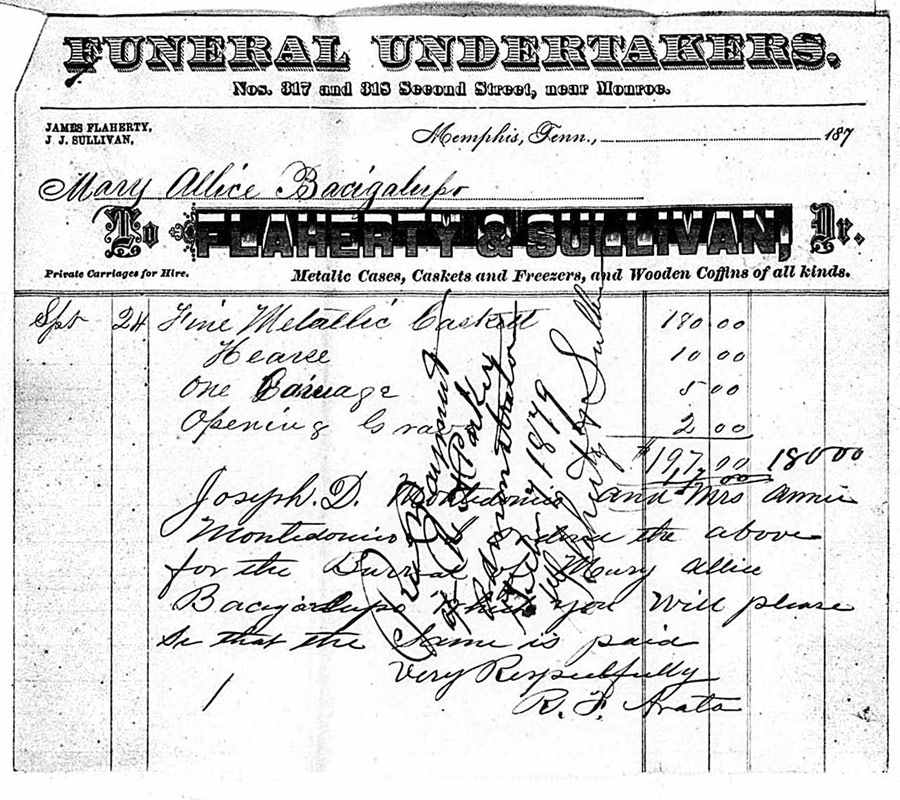 FUNERAL UNDERTAKERS.
Nos. 317 and 318 Second Street, near Monroe.
JAMES FLAHERTY,
J. J. SULLIVAN,
Memphis, Tenn., 187
Mary Allice Bacigalupo
To FLAHERTY & SULLIVAN, Dr.
Private Carriages for Hire.
Metalic Cases, Caskets and Freezers, and Wooden Coffins of all kinds.
Spt 24 Fine Metallic Caskett 180 00
Hearse 10 00
One Carriage 5 00
Opening Grave 2 00
$197.00 180 00
Joseph. D. Montedonico and Mrs Annie
Montedonico the above
for the Burial of Mary Allice
Bacigalupo which you will please
Se that the Same is paid
Very Respectfully
R. F. Arata
Payment
1879
Flaherty & Sullivan